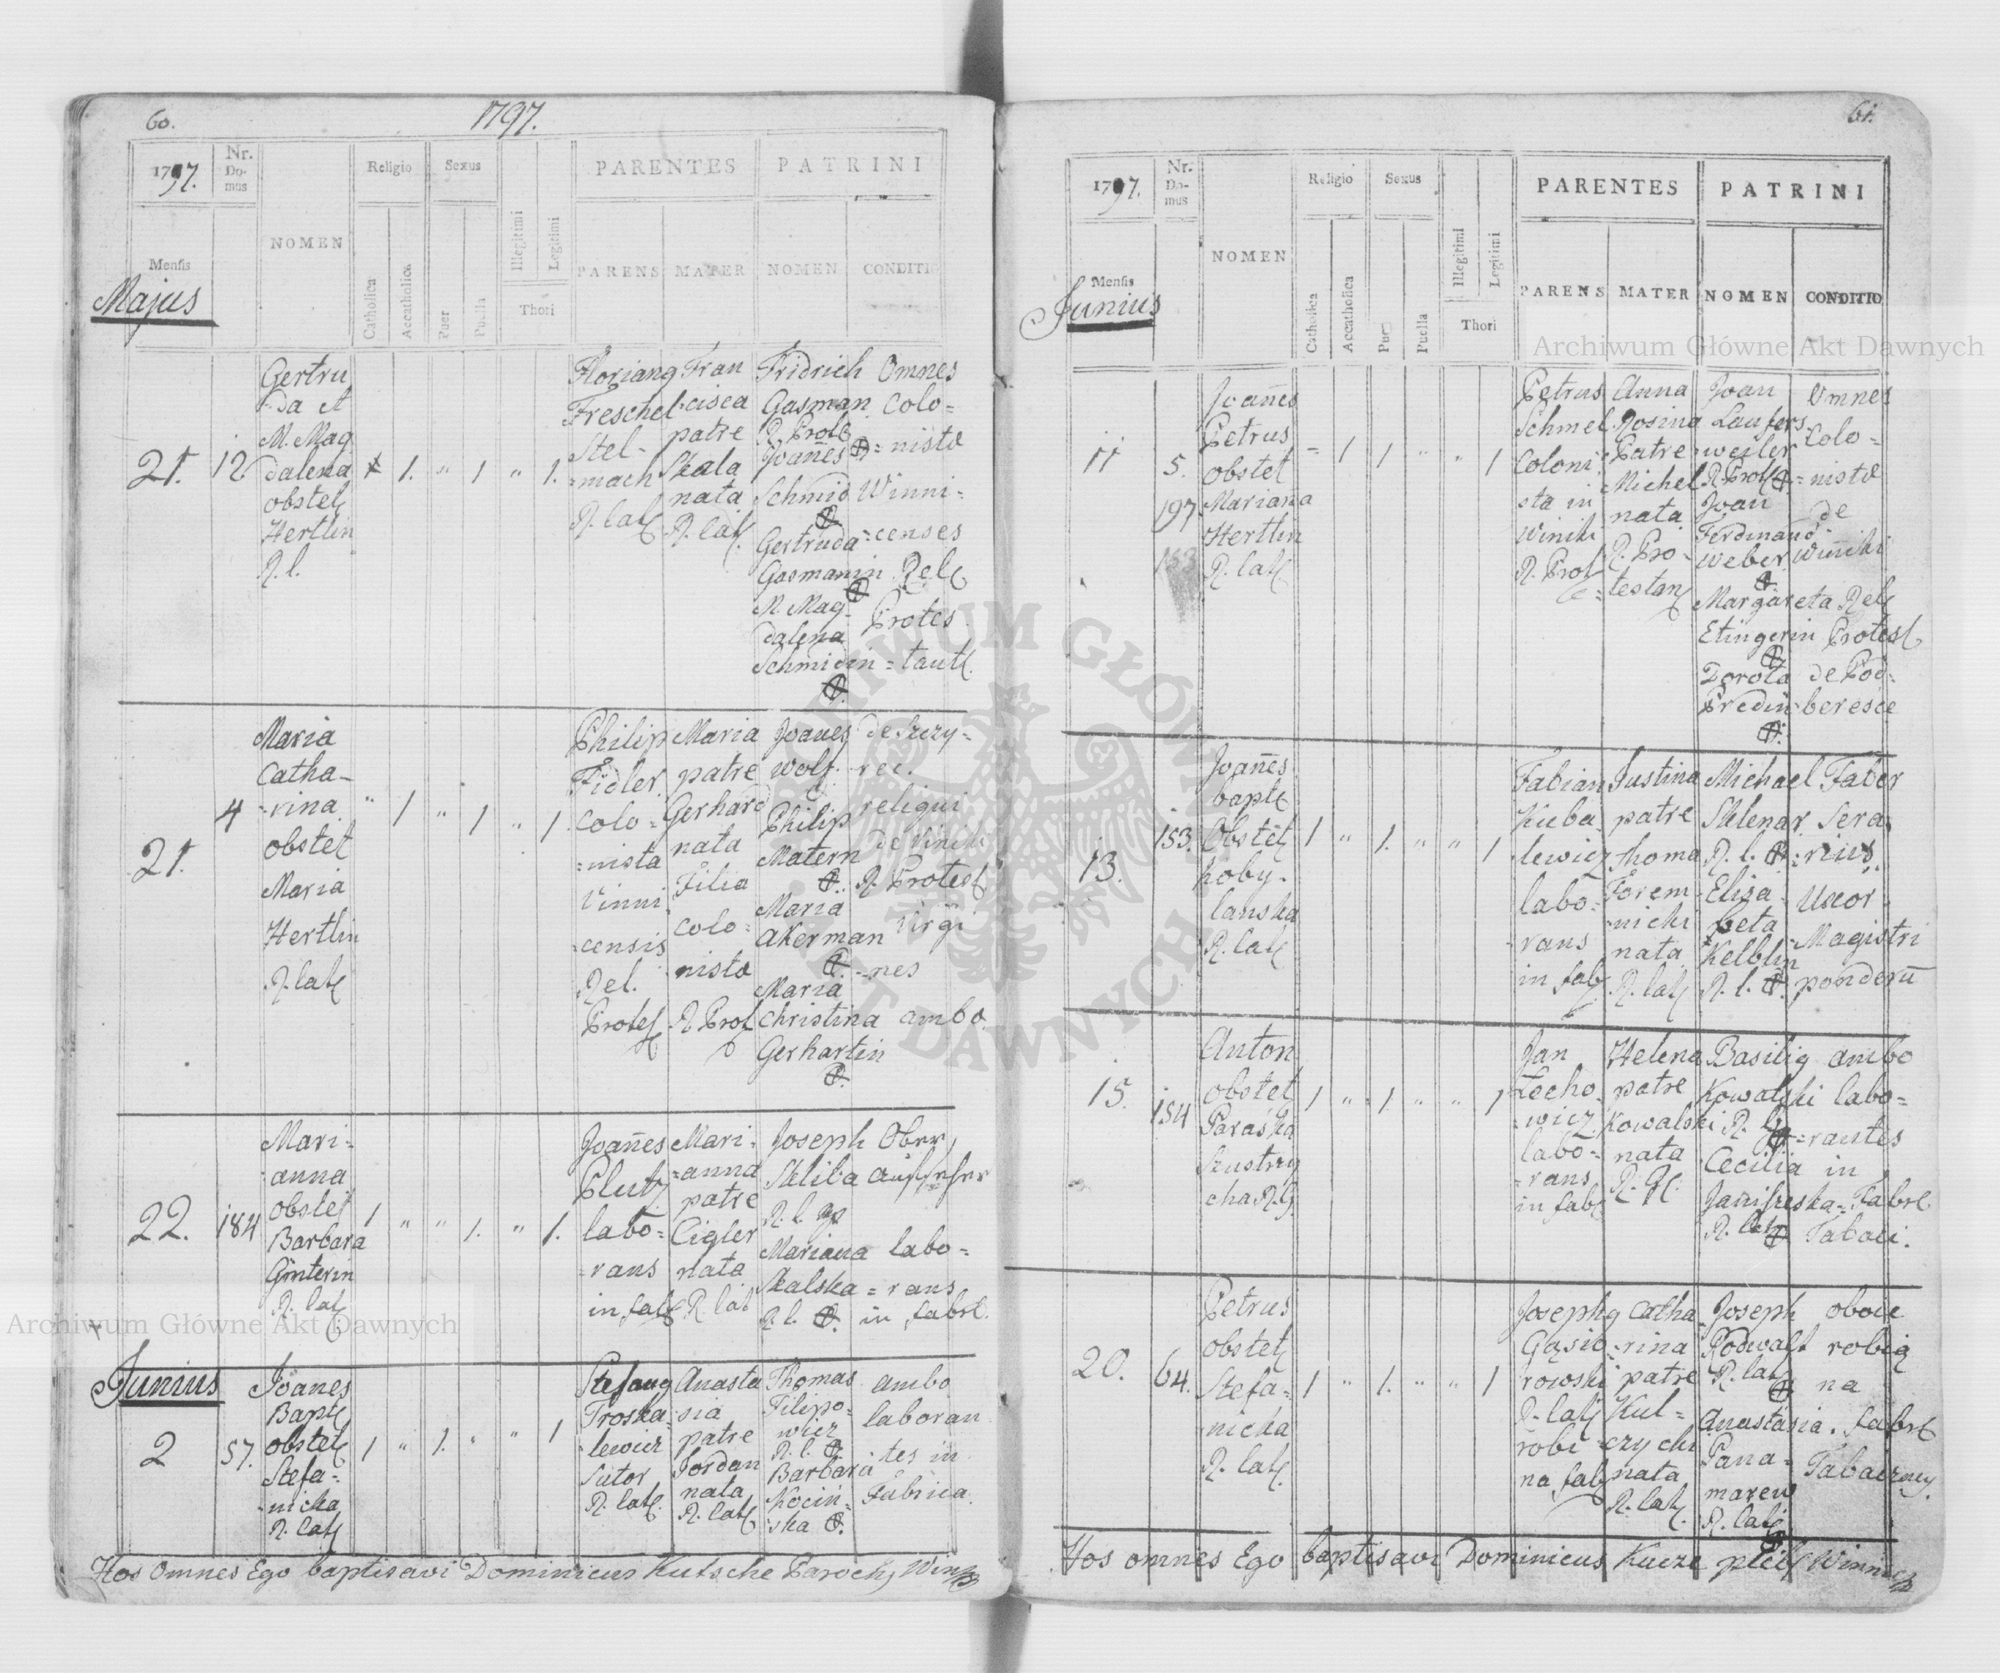 60.
1797.
1797.
Nr. Domus
NOMEN
Religio
Sexus
PARENTES
PATRINI
Catholica
Accatholica
Puer
Puella
Illegitimi
Legitimi
Thori
PARENS
MATER
NOMEN
CONDITI
Mensis
Majus
21.
12
Gertru
da et
M. Mag
dalena
obstet
Hertlin
R. l.
1.
"
1
"
1.
Florian
Freschel
Stel-
=mach
R. lat
Fran
cisca
patre
Skala
nata
R. lat.
Fridrich
Gasman
R. Prot
Joanes
Schmid
Gertruda
Gasmanin
M. Mag-
dalena
Schmidin
Omnes
Colo=
=nistæ
Winni=
=censes
Rel
Protes
=tant
21.
4
Maria
Catha-
=rina
obstet
Maria
Hertlin
R. lat
"
1
"
1
"
1.
Philip
Fidler
Colo=
=nista
Vinni
=censis
Rel.
Protes
Maria
patre
Gerhard
nata
Filia
Colo=
nistæ
R. Prot
Joanes
Wolf.
Philip
Matern
Maria
Akerman
Maria
Christina
Gerhartin
de Szczy=
rec.
religui
de Viniki
R. Protest
Virgi
=nes
ambo
22.
184
Mari=
=anna
obstet
Barbara
Ginterin
R. lat
1
"
"
1.
"
1.
Joanes
Plutz
labo=
=rans
in fab
Mari=
=anna
patre
Cigler
nata
R. lat
Joseph
Skliba
R. l.
Mariana
Skalska
R. l.
Ober
aufseher
labo=
=rans
in fabr.
Junius
2
57.
Joanes
Bapt
obstet
Stefa=
=nicka
R. lat
1
"
1.
"
"
1
Stefang
Troska=
=lewicz
Sutor
R. lat.
Anasta
=sia
patre
Jordan
nata
R. lat
Thomas
Filipo=
wicz
R. l.
Barbara
Kocin=
ska
ambo
laboran
=tes in
Fabrica.
Hos Omnes Ego baptisavi Dominicus Kutsche Paroch,
61.
1797.
Nr. Domus
NOMEN
Religio
Sexus
PARENTES
PATRINI
Catholica
Accatholica
Puer
Puella
Illegitimi
Legitimi
Thori
PARENS
MATER
NOMEN
CONDITIO
Mensis
Junius
11
5.
197
Joanes
Petrus
obstet
Mariana
Hertlin
R. lat
=
1
1
"
"
1
Petrus
Schmel
Coloni
sta in
Winiki
R. Prot
Anna
Rosina
Patre
Michel
nata
R. Pro-
=testan
Joan
Laufers
=weiler
R. Prot
Joan
Ferdinand
Weber
Margareta
Etingerin
Dorota
Predin
Omnes
Colo=
=nistæ
de
Winiki
Rel
Protest
de Pod=
beresce
13.
153.
Joanes
bapt
Obstet
Koby-
lanska
R. lat
1
"
1.
"
"
1
Fabian
Kuba
lewicz
labo=
rans
in fab
Justina
patre
Thoma
Forem=
=nicki
nata
R. lat
Michael
Sklenar
R. l.
Elisa=
beta
Kelblin
R. l.
Faber
Sera
=rius,
Uxor
Magistri
ponderu
15.
154
Anton
obstet
Paraska
Szustrzy
cha R. G.
1
"
1.
"
"
1
Jan
Lecho
=wicz
labo=
=rans
in fab
Helena
patre
Kowalski
nata
R. G.
Basilig
Kowalski
R. G.
Cecilia
R. lat
ambo
labo=
=rantes
in
Fabr.
Tabaci.
20.
64.
Petrus
obstet
Stefa=
nicka
R. lat
1
"
1.
"
"
1
Josephg
Gąsio
rowski
R. lat
robi
na fab
Catha
=rina
patre
Kul=
=czycki
nata
R. lat
Joseph
Rodwalt
R. lat
Anastasia
Pana=
marew
R. lat
oboie
robią
na
fabr
Tabaczney.
Hos omnes Ego baptisavi Dominicus Kucze
Archiwum Główne Akt Dawnych
Archiwum Główne Akt Dawnych
ARCHIWUM GŁÓWNE AKT DAWNYCH